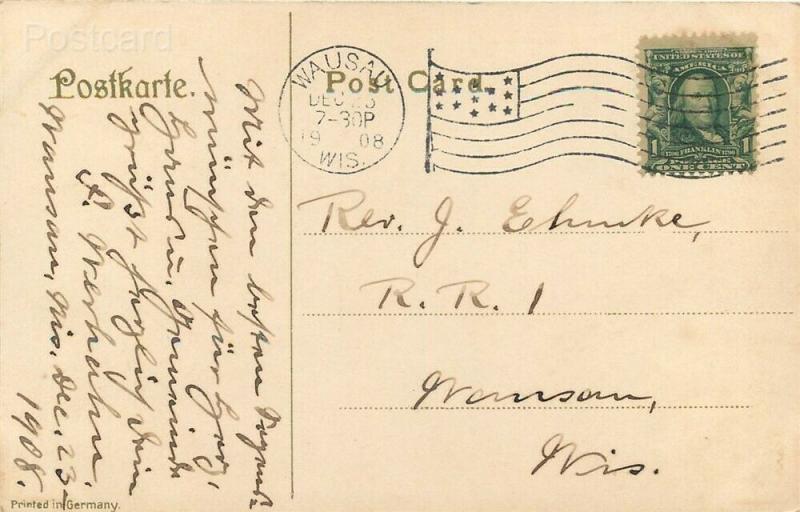 Postcard
Postkarte.
Post Card.
WAUSAU
DEC 23
7-30P
1908
WIS.
UNITED STATES OF
AMERICA
1 FRANKLIN 1
ONE CENT
Mit den besten Segens-
wünschen für Herz,
Haus u. Gemeinde
grüßt herzlich Dein
Werhahn.
Wausau, Wis. Dec. 23-
1908.
Rev. J. Ehmke,
R. R. 1
Wausau,
Wis.
Printed in Germany.